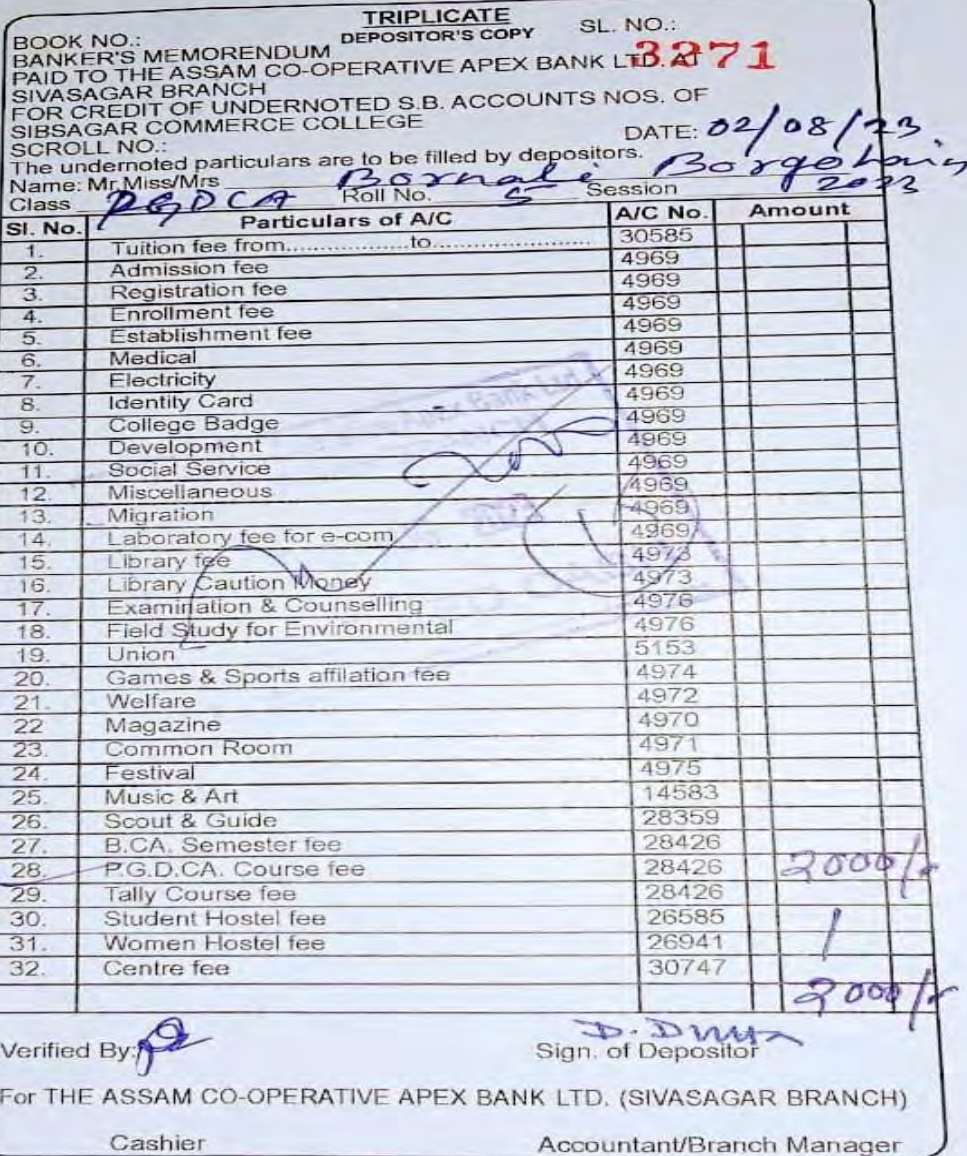 TRIPLICATE
BOOK NO.: DEPOSITOR'S COPY SL. NO.:
BANKER'S MEMORENDUM 3271
PAID TO THE ASSAM CO-OPERATIVE APEX BANK LTD. AT
SIVASAGAR BRANCH
FOR CREDIT OF UNDERNOTED S.B. ACCOUNTS NOS. OF
SIBSAGAR COMMERCE COLLEGE
SCROLL NO.: DATE: 02/08/23
The undernoted particulars are to be filled by depositors.
Name: Mr.Miss/Mrs Bornali Borgohain
Class PGDCA Roll No. 5 Session 2023
Sl. No. Particulars of A/C A/C No. Amount
1. Tuition fee from..................to........................ 30585
2. Admission fee 4969
3. Registration fee 4969
4. Enrollment fee 4969
5. Establishment fee 4969
6. Medical 4969
7. Electricity 4969
8. Identity Card 4969
9. College Badge 4969
10. Development 4969
11. Social Service 4969
12. Miscellaneous 4969
13. Migration 4969
14. Laboratory fee for e-com 4969
15. Library fee 4973
16. Library Caution Money 4973
17. Examination & Counselling 4976
18. Field Study for Environmental 4976
19. Union 5153
20. Games & Sports affilation fee 4974
21. Welfare 4972
22 Magazine 4970
23. Common Room 4971
24. Festival 4975
25. Music & Art 14583
26. Scout & Guide 28359
27. B.CA. Semester fee 28426
28. P.G.D.CA. Course fee 28426 2000/-
29. Tally Course fee 28426
30. Student Hostel fee 26585
31. Women Hostel fee 26941
32. Centre fee 30747
2000/-
Apex Bank Ltd
Verified By: Sign. of Depositor
For THE ASSAM CO-OPERATIVE APEX BANK LTD. (SIVASAGAR BRANCH)
Cashier Accountant/Branch Manager